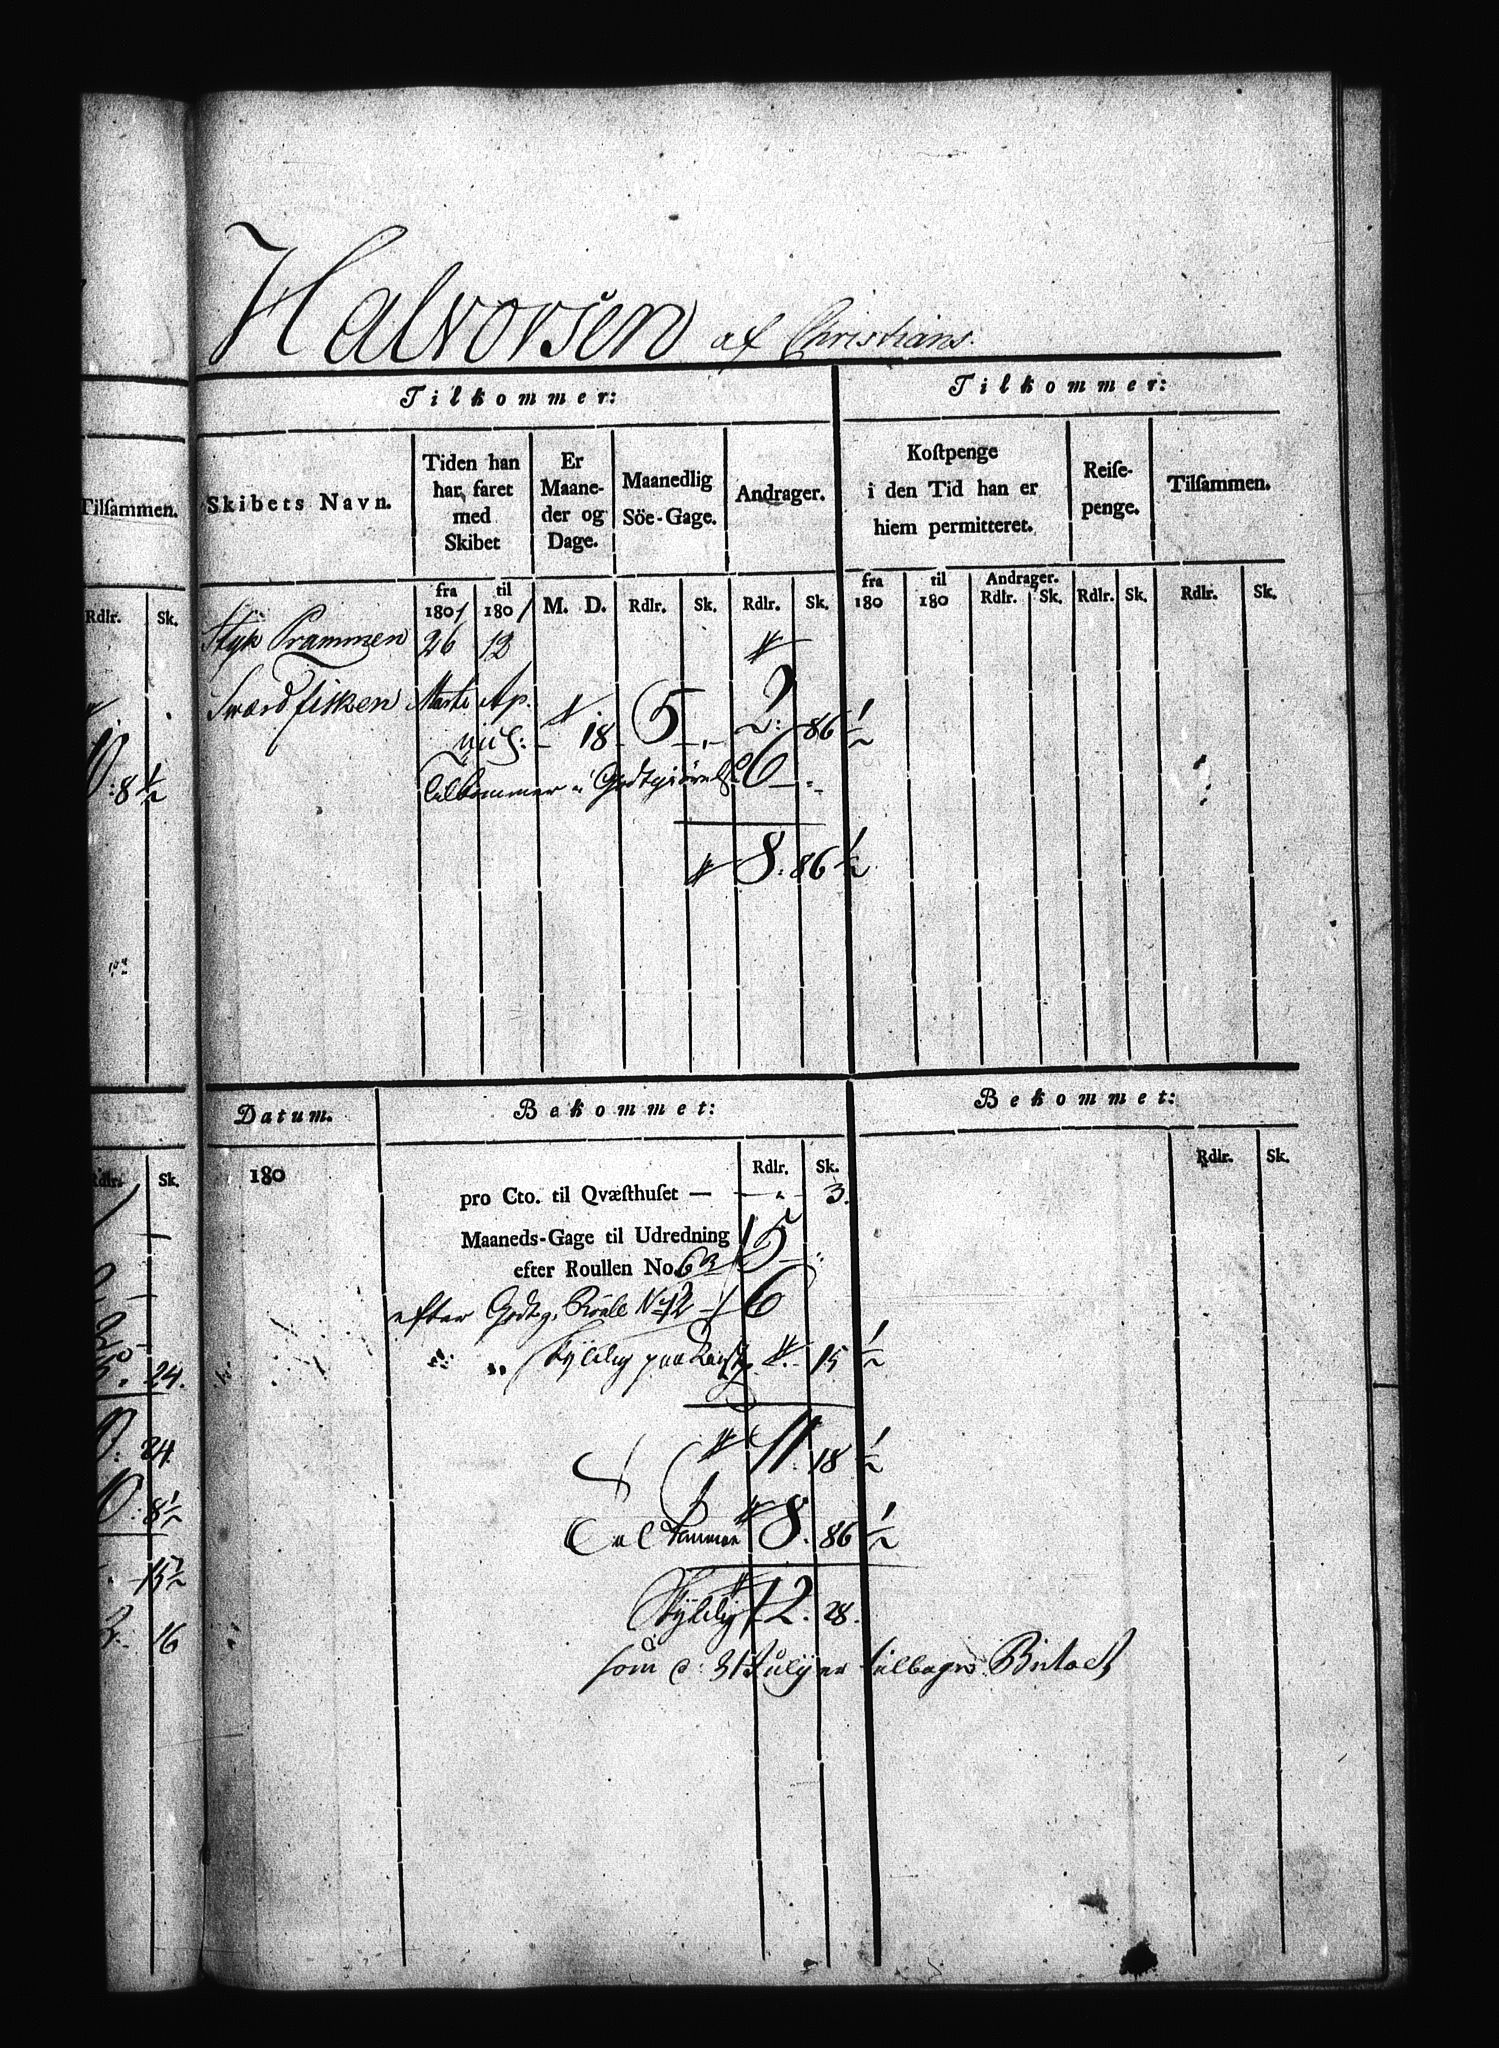 Halvorsen af Christians.
Tilkommer:
Tilkommer:
Tilsammen.
Skibets Navn.
Tiden han har faret med Skibet
Er Maaneder og Dage.
Maanedlig Söe-Gage.
Andrager.
Kostpenge i den Tid han er hiem permitteret.
Reisepenge.
Tilsammen.
Rdlr. Sk.
fra 1801 til 1801 M. D. Rdlr. Sk. Rdlr. Sk. fra 180 til 180 Andrager. Rdlr. Sk. Rdlr. Sk. Rdlr. Sk.
Styk Prammen 26 12
Sværdfisken Marts Ap.
18 5 2: 86 1/2
8 1/2
tilkommer i Godtgiörelse 6
8: 86 1/2
Datum. Bekommet: Bekommet:
Rdlr. Sk. 180 Rdlr. Sk. Rdlr. Sk.
pro Cto. til Qvæsthuset — " 3.
Maaneds-Gage til Udredning
efter Roullen No. 63 5
efter Godtg. Rolle No 12 6
Skyldig paa 15 1/2
24.
11. 18 1/2
24.
Tilkommer 8. 86 1/2
8 1/2
15 1/2
Skyldig 2. 28.
16
som d: 31 July er tilbage